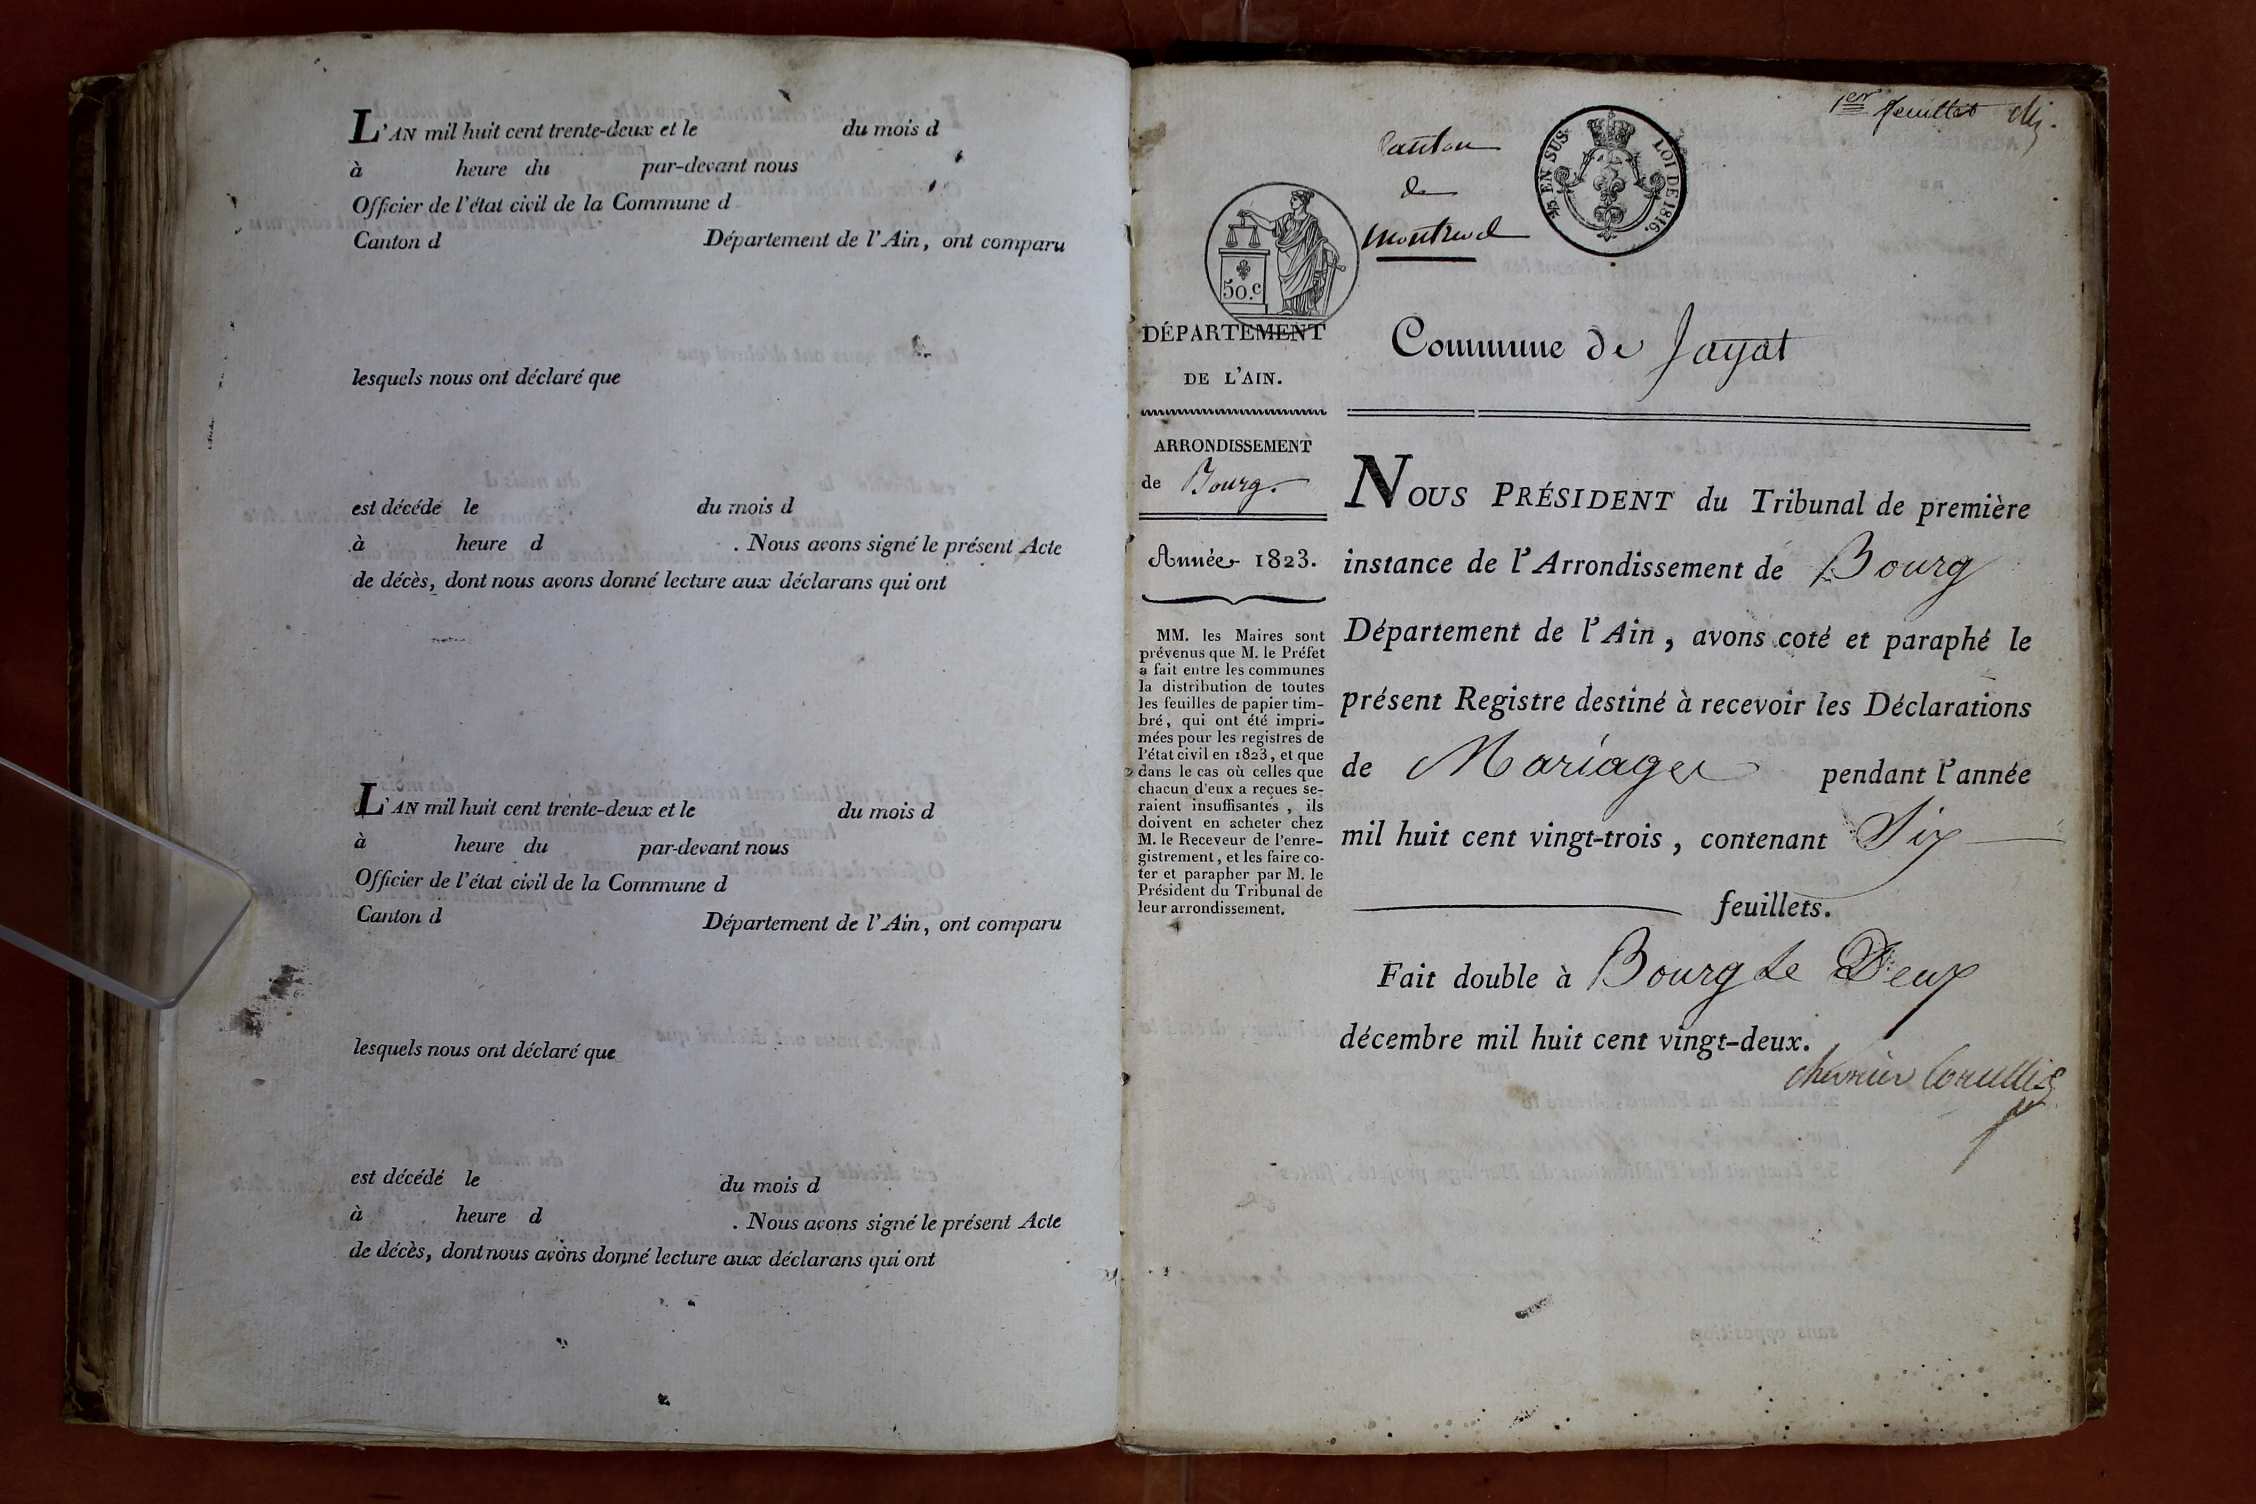 L'AN mil huit cent trente-deux et le du mois d
à heure du par-devant nous
Officier de l'état civil de la Commune d
Canton d Département de l'Ain, ont comparu
lesquels nous ont déclaré que
est décédé le du mois d
à heure d . Nous avons signé le présent Acte
de décès, dont nous avons donné lecture aux déclarans qui ont
L'AN mil huit cent trente-deux et le du mois d
à heure du par-devant nous
Officier de l'état civil de la Commune d
Canton d Département de l'Ain, ont comparu
lesquels nous ont déclaré que
est décédé le du mois d
à heure d . Nous avons signé le présent Acte
de décès, dont nous avons donné lecture aux déclarans qui ont
1er feuillet
Canton
de
Montrevel
EN SUS. LOI DE 1816.
50.c
DÉPARTEMENT
DE L'AIN.
ARRONDISSEMENT
de Bourg.
Année 1823.
MM. les Maires sont
prévenus que M. le Préfet
a fait entre les communes
la distribution de toutes
les feuilles de papier tim-
bré, qui ont été impri-
mées pour les registres de
l'état civil en 1823, et que
dans le cas où celles que
chacun d'eux a reçues se-
raient insuffisantes, ils
doivent en acheter chez
M. le Receveur de l'enre-
gistrement, et les faire co-
ter et parapher par M. le
Président du Tribunal de
leur arrondissement.
Commune de Jayat
NOUS PRÉSIDENT du Tribunal de première
instance de l'Arrondissement de Bourg
Département de l'Ain, avons coté et paraphé le
présent Registre destiné à recevoir les Déclarations
de Mariages pendant l'année
mil huit cent vingt-trois, contenant Six
feuillets.
Fait double à Bourg le Deux
décembre mil huit cent vingt-deux.
chevrier Corcelles